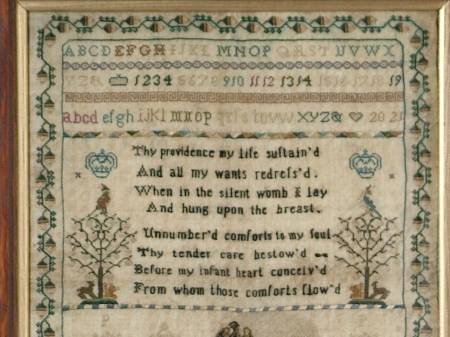 ABCDEFGHIJKL MNOP QRST UVWX
YZ& 1234 5678 910 11 12 1314 15 16 17 18 19
abcd efgh ijkl mnop qrst uvw xyz& 20 21
Thy providence my life sustain'd
And all my wants redress'd.
When in the silent womb I lay
And hung upon the breast.
Unnumber'd comforts to my soul
Thy tender care bestow'd
Before my infant heart conceiv'd
From whom those comforts flow'd